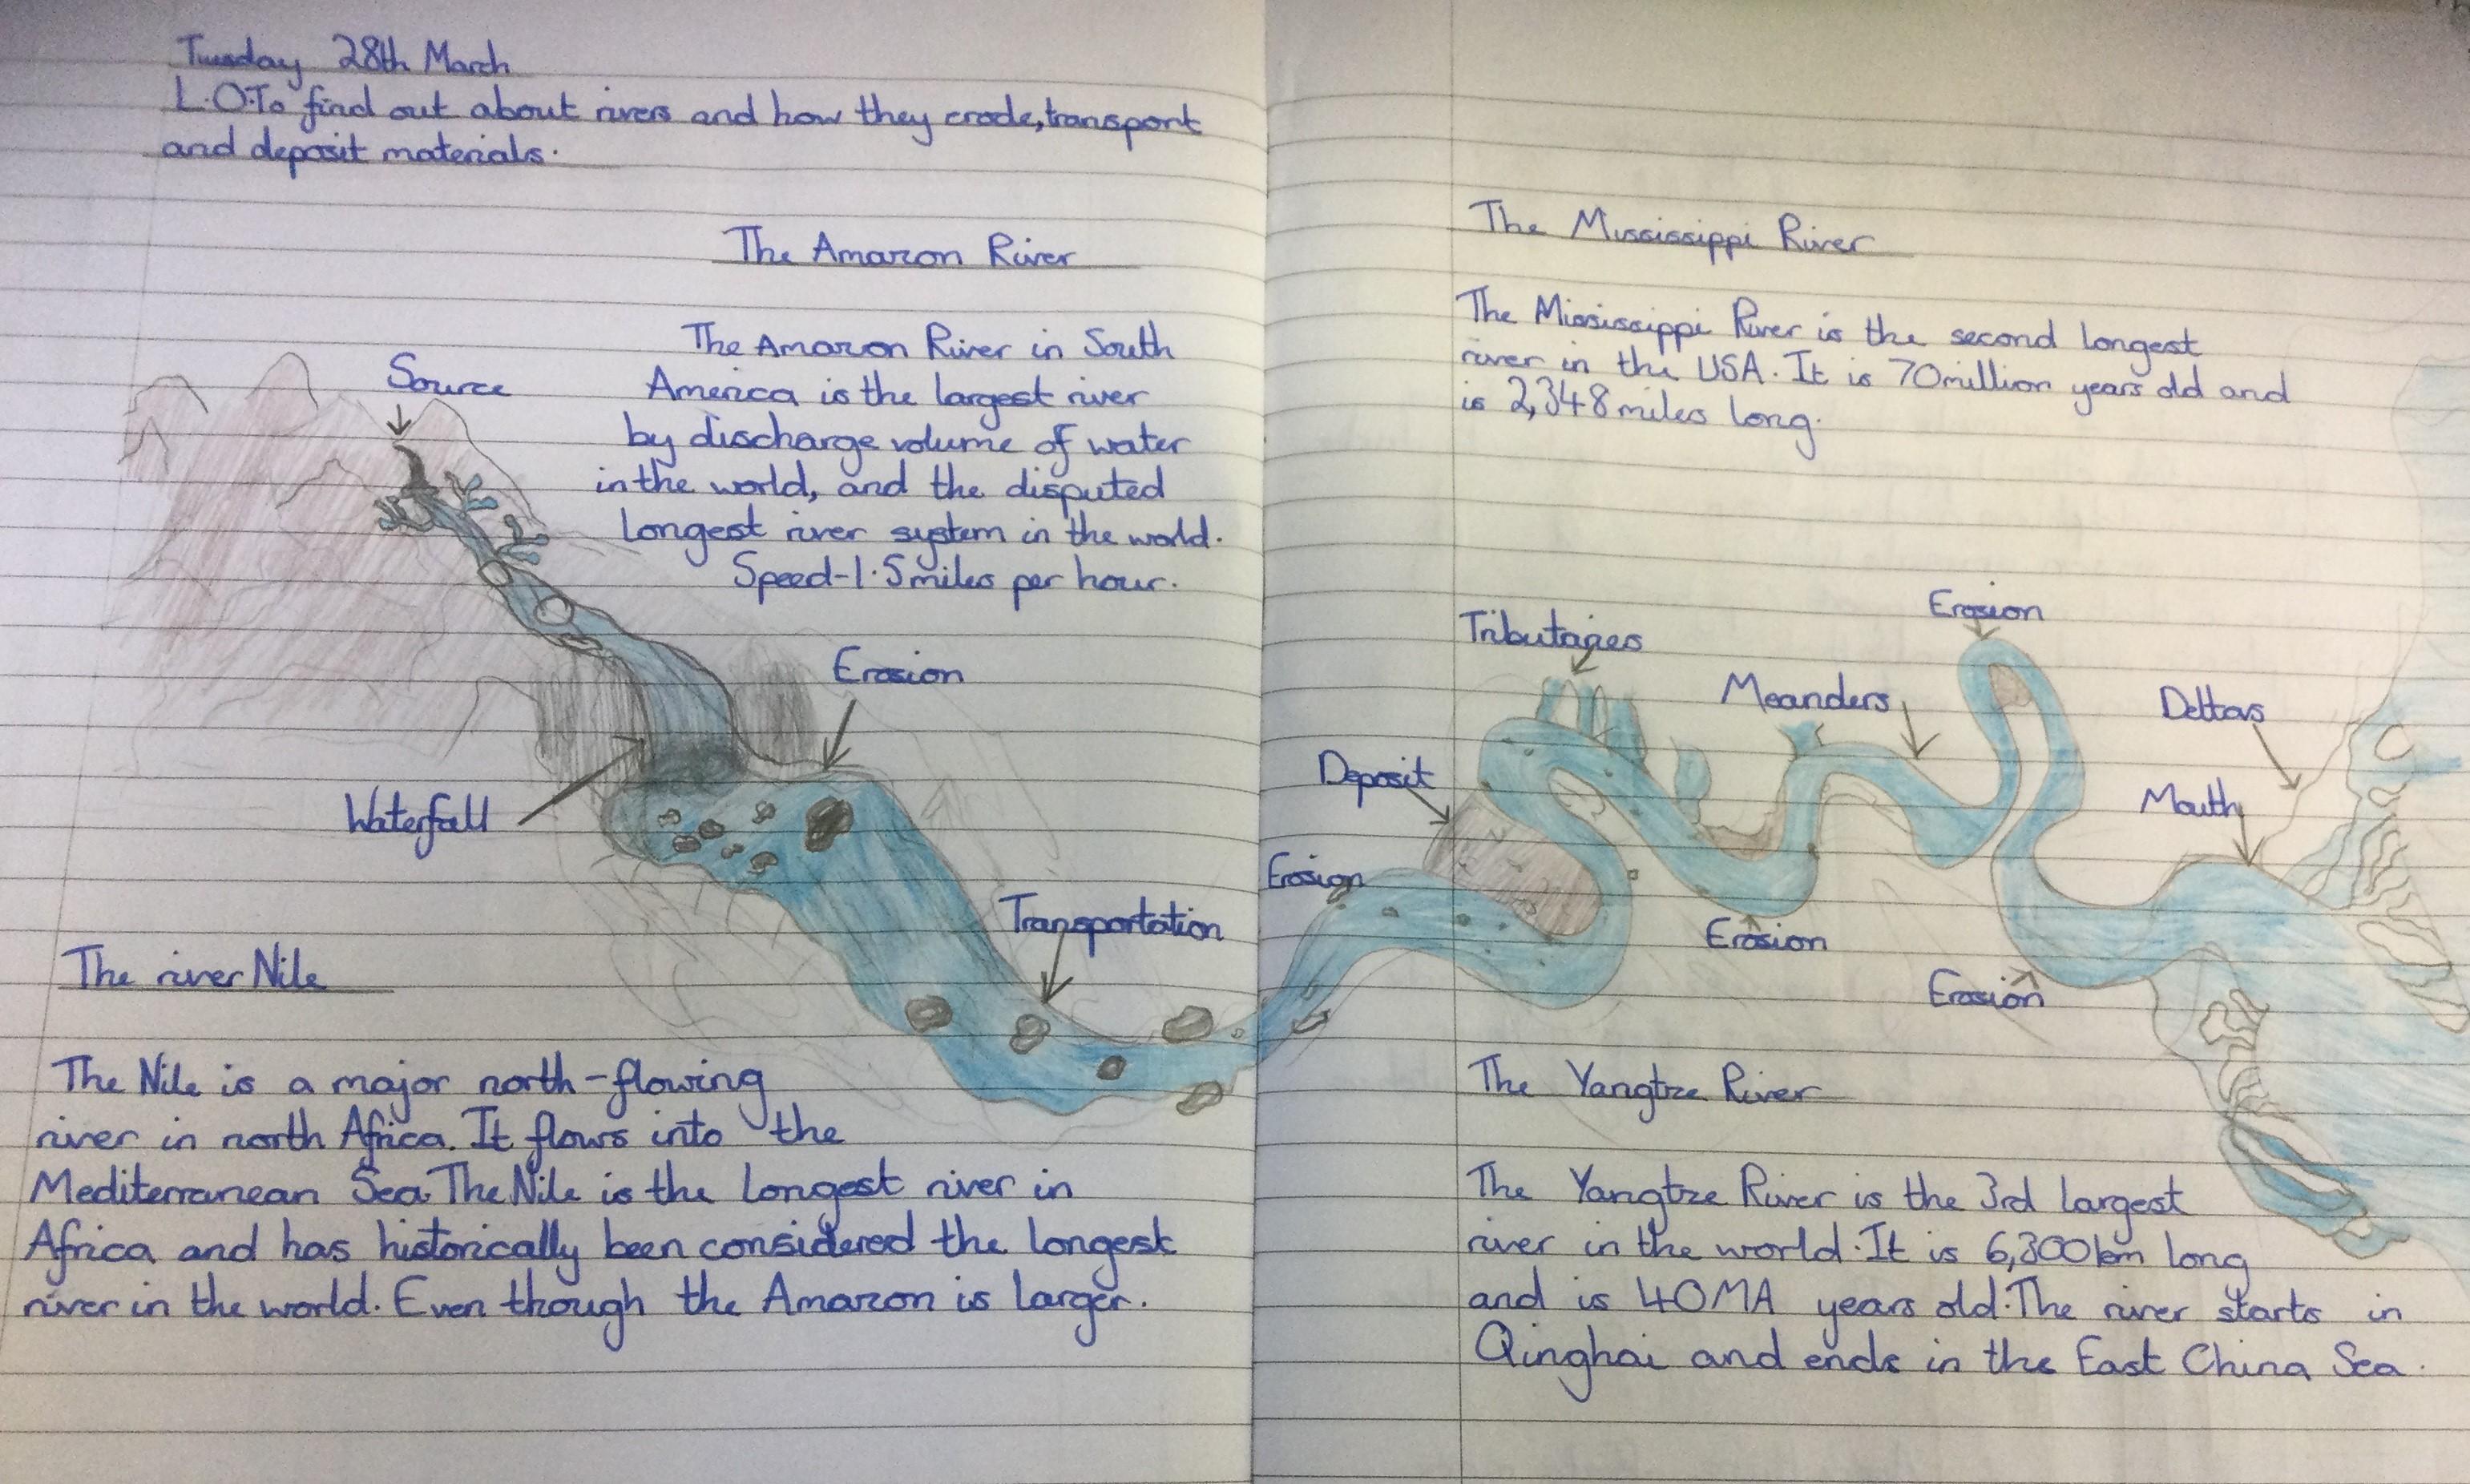 Tuesday 28th March
L.O.To find out about rivers and how they erode, transport
and deposit materials.
The Amazon River
The Amazon River in South
America is the largest river
by discharge volume of water
in the world, and the disputed
longest river system in the world.
Speed-1.5 miles per hour.
Source
Erosion
Waterfall
Transportation
The river Nile
The Nile is a major north-flowing
river in north Africa. It flows into the
Mediterranean Sea. The Nile is the longest river in
Africa and has historically been considered the longest
river in the world. Even though the Amazon is larger.
The Mississippi River
The Mississippi River is the second longest
river in the USA. It is 70 million years old and
is 2,348 miles long.
Tributaries
Erosion
Meanders
Deltas
Deposit
Mouth
Erosion
Erosion
Erosion
The Yangtze River
The Yangtze River is the 3rd largest
river in the world. It is 6,300km long
and is 40MA years old. The river starts in
Qinghai and ends in the East China Sea.